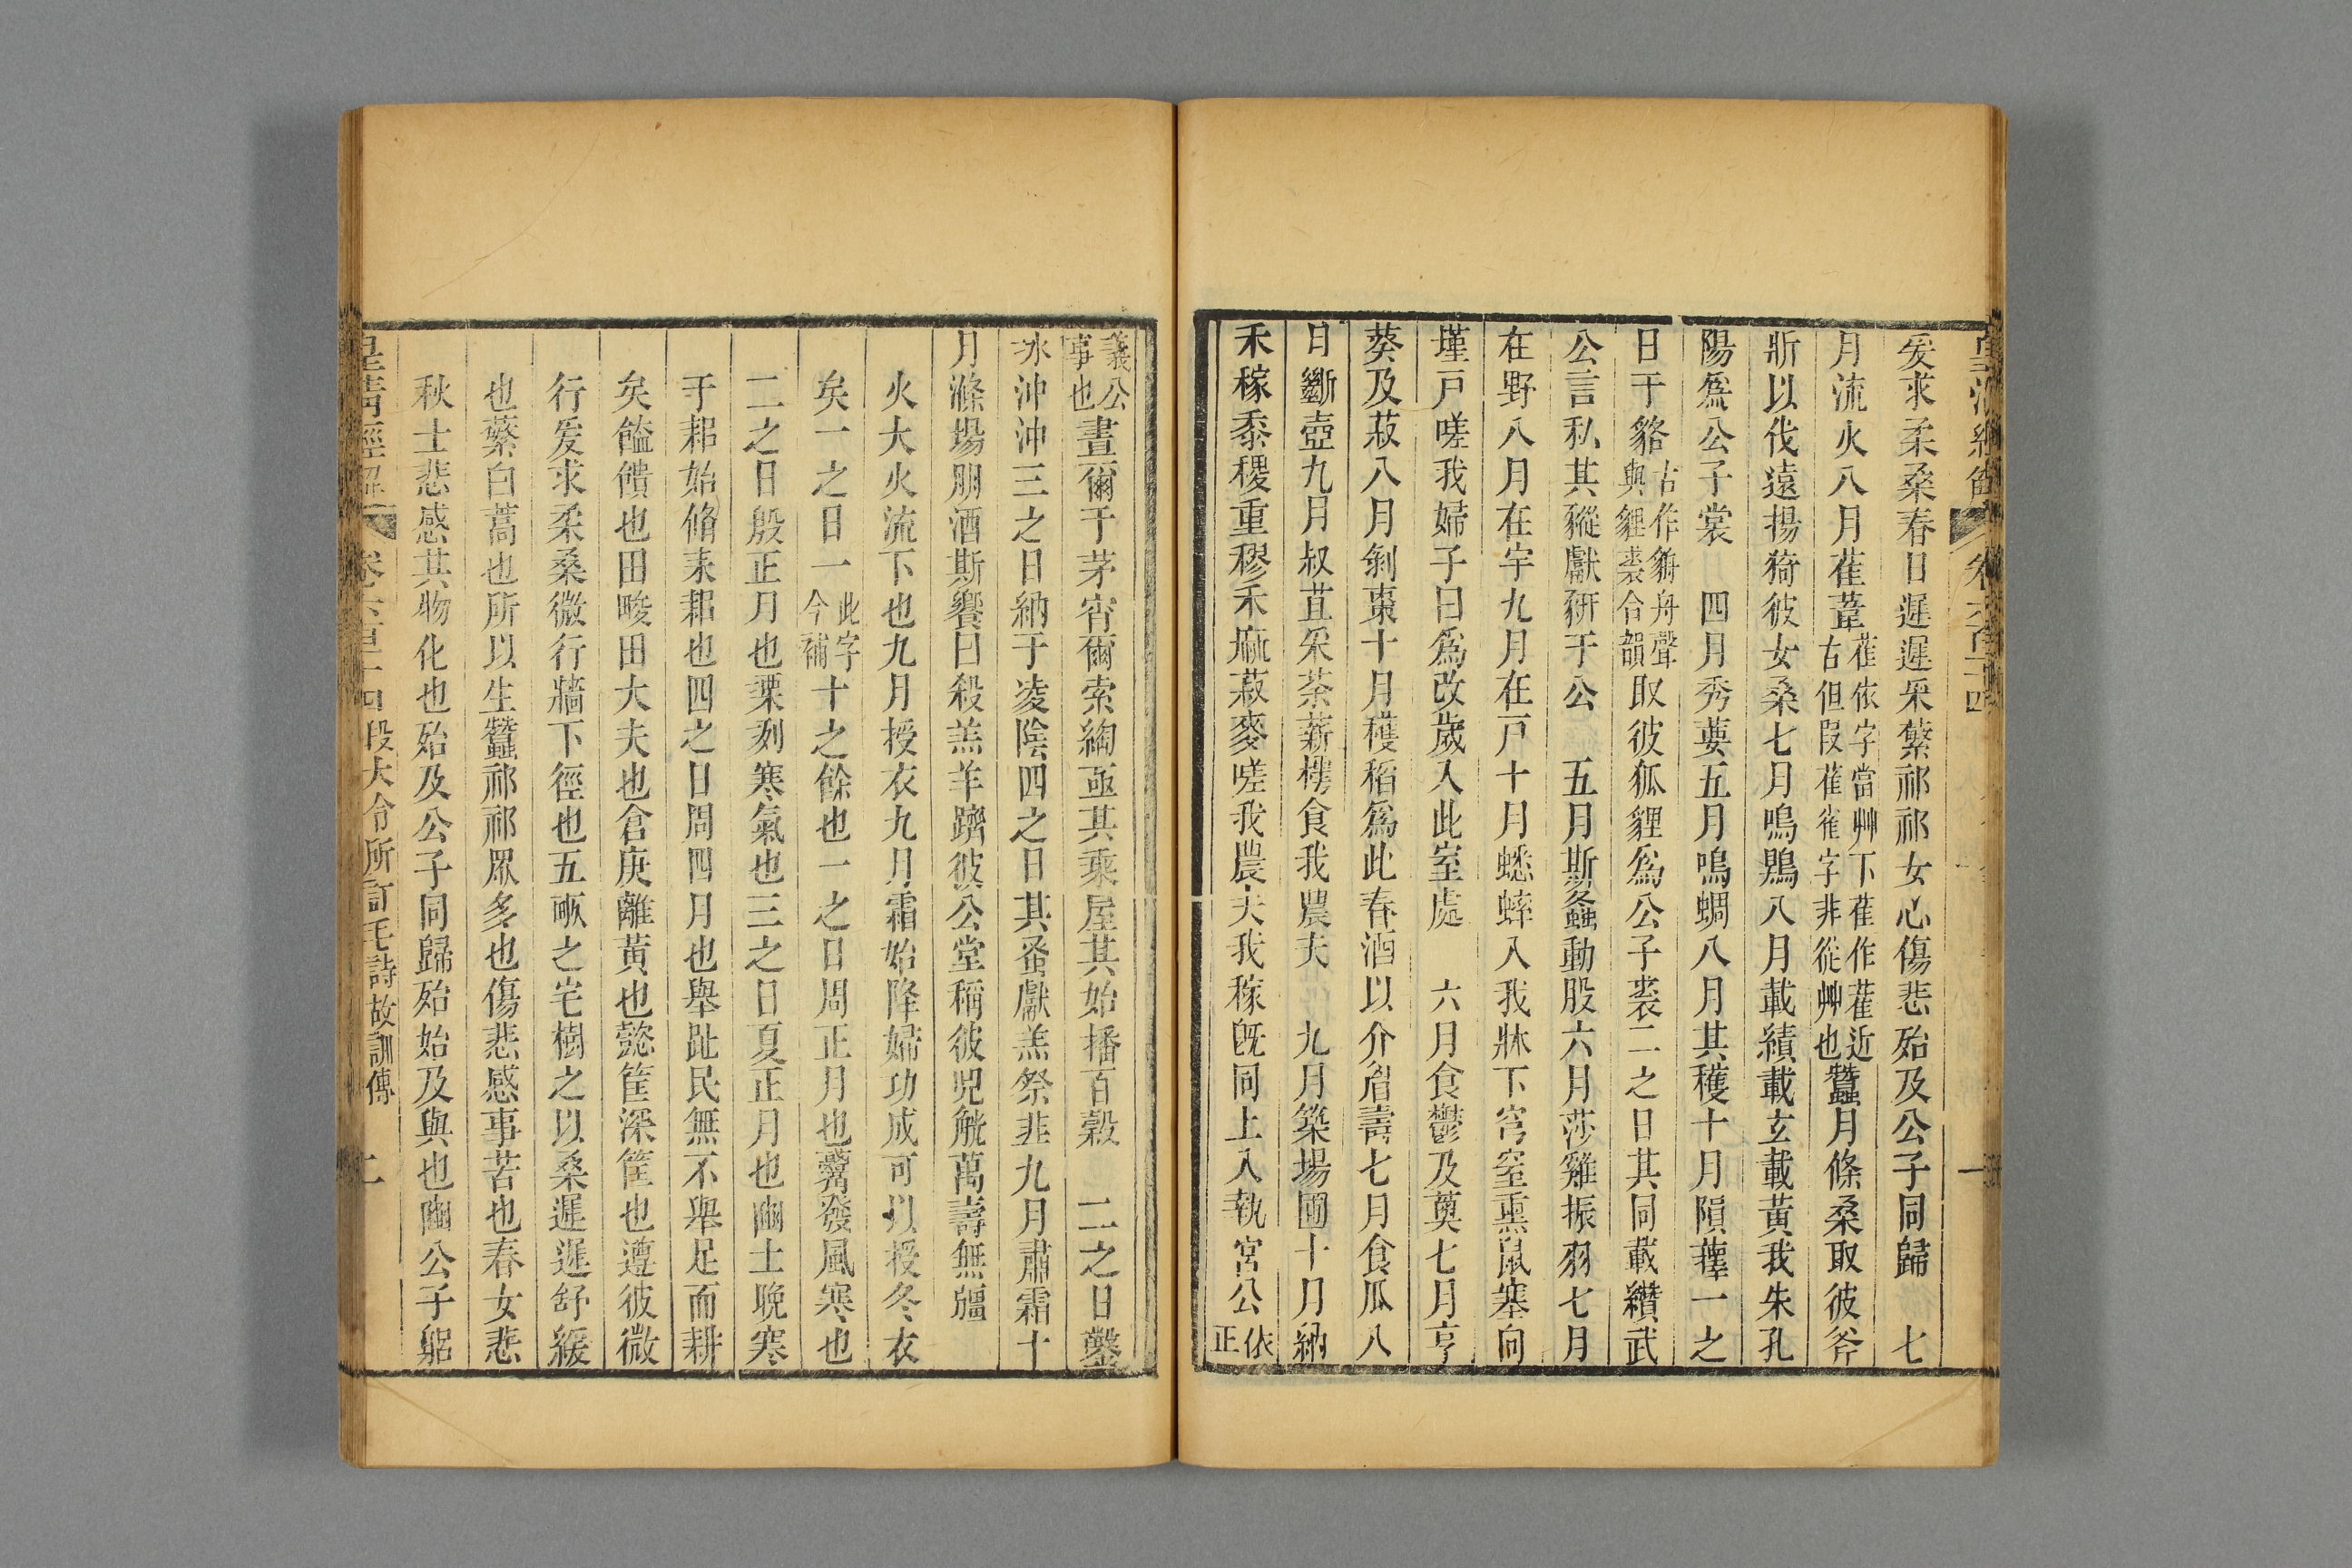 爰求柔桑春日遲遲采蘩祁祁女心傷悲殆及公子同歸　七
月流火八月萑葦萑依字當艸下萑作雚近古但叚萑雀字非從艸也蠶月條桑取彼斧
斨以伐遠揚猗彼女桑七月鳴鵙八月載績載玄載黃我朱孔
陽爲公子裳　四月秀葽五月鳴蜩八月其穫十月隕蘀一之
日于貉古作貈舟聲與貍裘合韻取彼狐貍爲公子裘二之日其同載纘武
公言私其豵獻豜于公　五月斯螽動股六月莎雞振羽七月
在野八月在宇九月在戸十月蟋蟀入我牀下穹窒熏鼠塞向
墐戸嗟我婦子曰爲改歲入此室處　六月食鬱及薁七月亨
葵及菽八月剝棗十月穫稻爲此春酒以介眉壽七月食瓜八
日斷壺九月叔苴采荼薪樗食我農夫　九月築場圃十月納
禾稼黍稷重穋禾麻菽麥嗟我農夫我稼旣同上入執宮公依正
義公事也晝爾于茅宵爾索綯亟其乘屋其始播百穀　二之日鑿
冰沖沖三之日納于凌陰四之日其蚤獻羔祭韭九月肅霜十
月滌場朋酒斯饗曰殺羔羊躋彼公堂稱彼兕觥萬壽無疆
火大火流下也九月授衣九月霜始降婦功成可以授冬衣
矣一之日一此字今補十之餘也一之日周正月也觱發風寒也
二之日殷正月也栗列寒氣也三之日夏正月也豳土晚寒
于耜始脩耒耜也四之日周四月也舉趾民無不舉足而耕
矣饁饋也田畯田大夫也倉庚離黃也懿筐深筐也遵彼微
行爰求柔桑微行牆下徑也五畝之宅樹之以桑遲遲舒緩
也蘩白蒿也所以生蠶祁祁眾多也傷悲感事苦也春女悲
秋士悲感其物化也殆及公子同歸殆始及與也豳公子躬
皇淸經解　卷六百十四　段大令所訂毛詩故訓傳　二